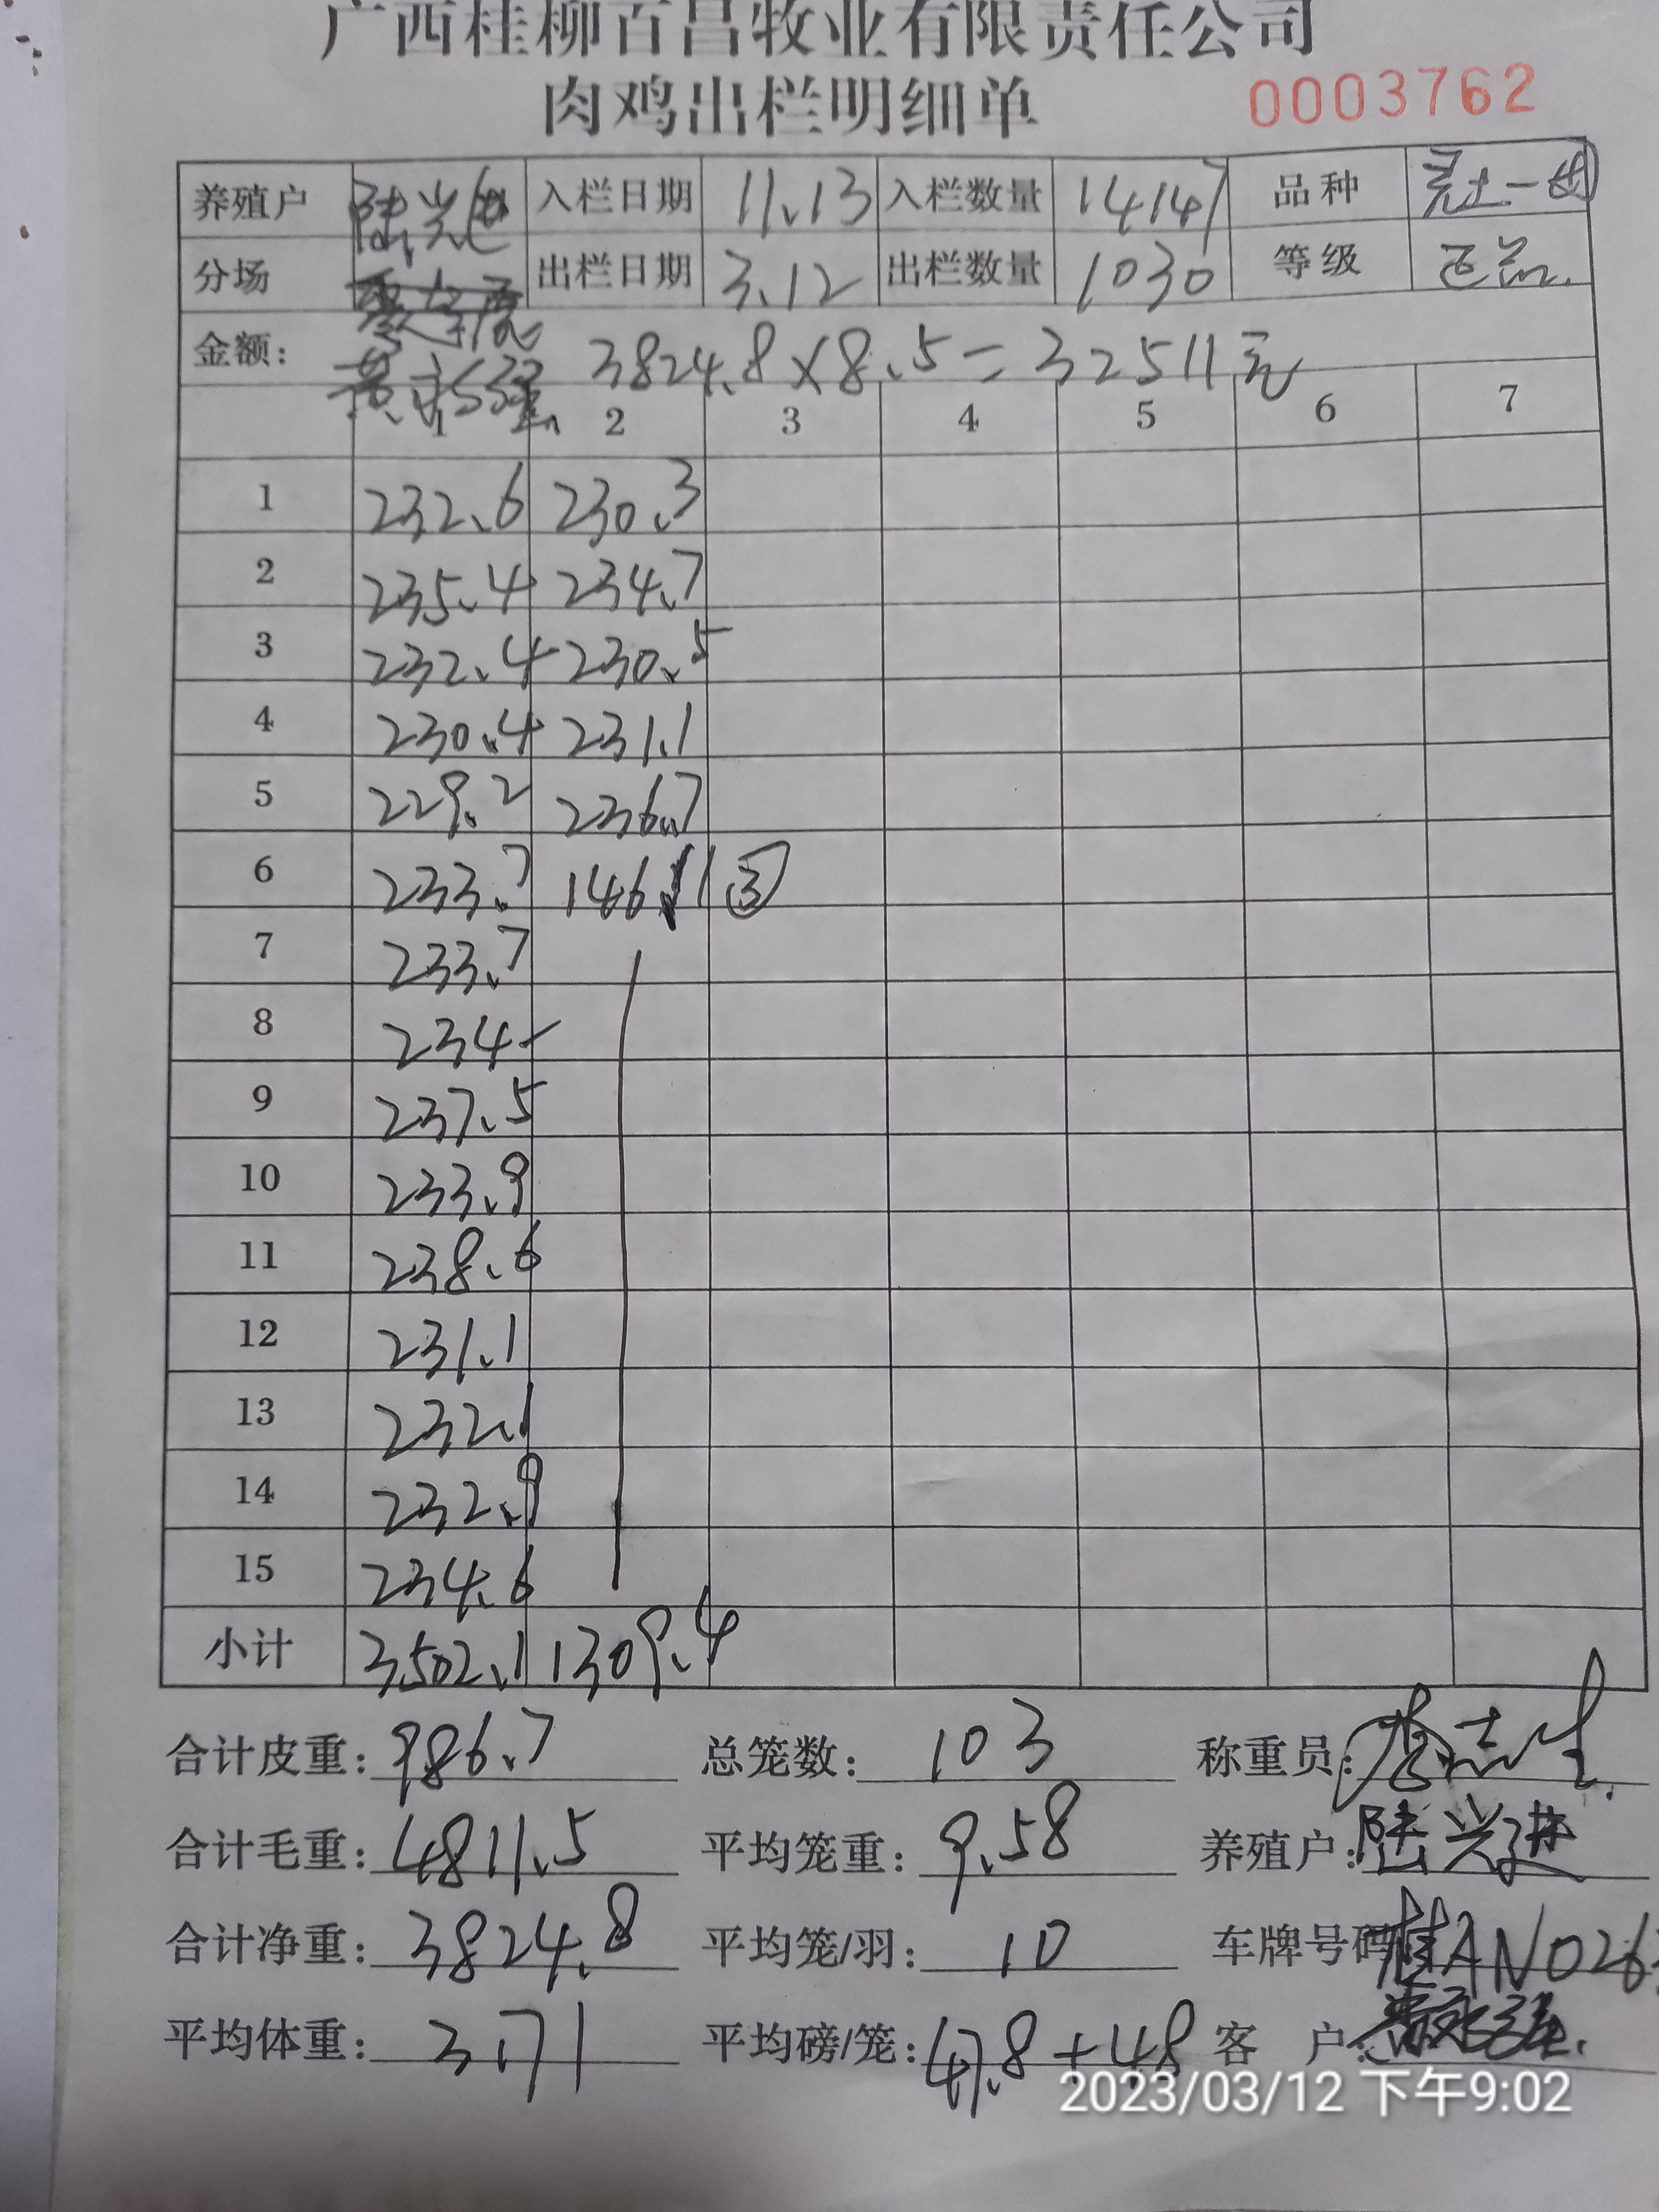 广西桂柳百昌牧业有限责任公司
肉鸡出栏明细单 0003762
养殖户 陆兴进 入栏日期 11.13 入栏数量 14147 品种
分场 出栏日期 3.12 出栏数量 1030 等级 正品.
金额: 3824.8×8.5=32511元
1 2 3 4 5 6 7
1 232.6 230.3
2 235.4 234.7
3 232.4 230.5
4 230.4 231.1
5 229.2 236.7
6 233.7 146.1 ③
7 233.7
8 234-
9 237.5
10 233.9
11 238.6
12 231.1
13 232.1
14 232.9
15 234.6
小计 3502.1 1309.4
合计皮重: 986.7 总笼数: 103 称重员:
合计毛重: 4811.5 平均笼重: 9.58 养殖户: 陆兴进
合计净重: 3824.8 平均笼/羽: 10 车牌号码 桂AN026
平均体重: 3.71 平均磅/笼: 47.8+48 客 户
2023/03/12 下午9:02